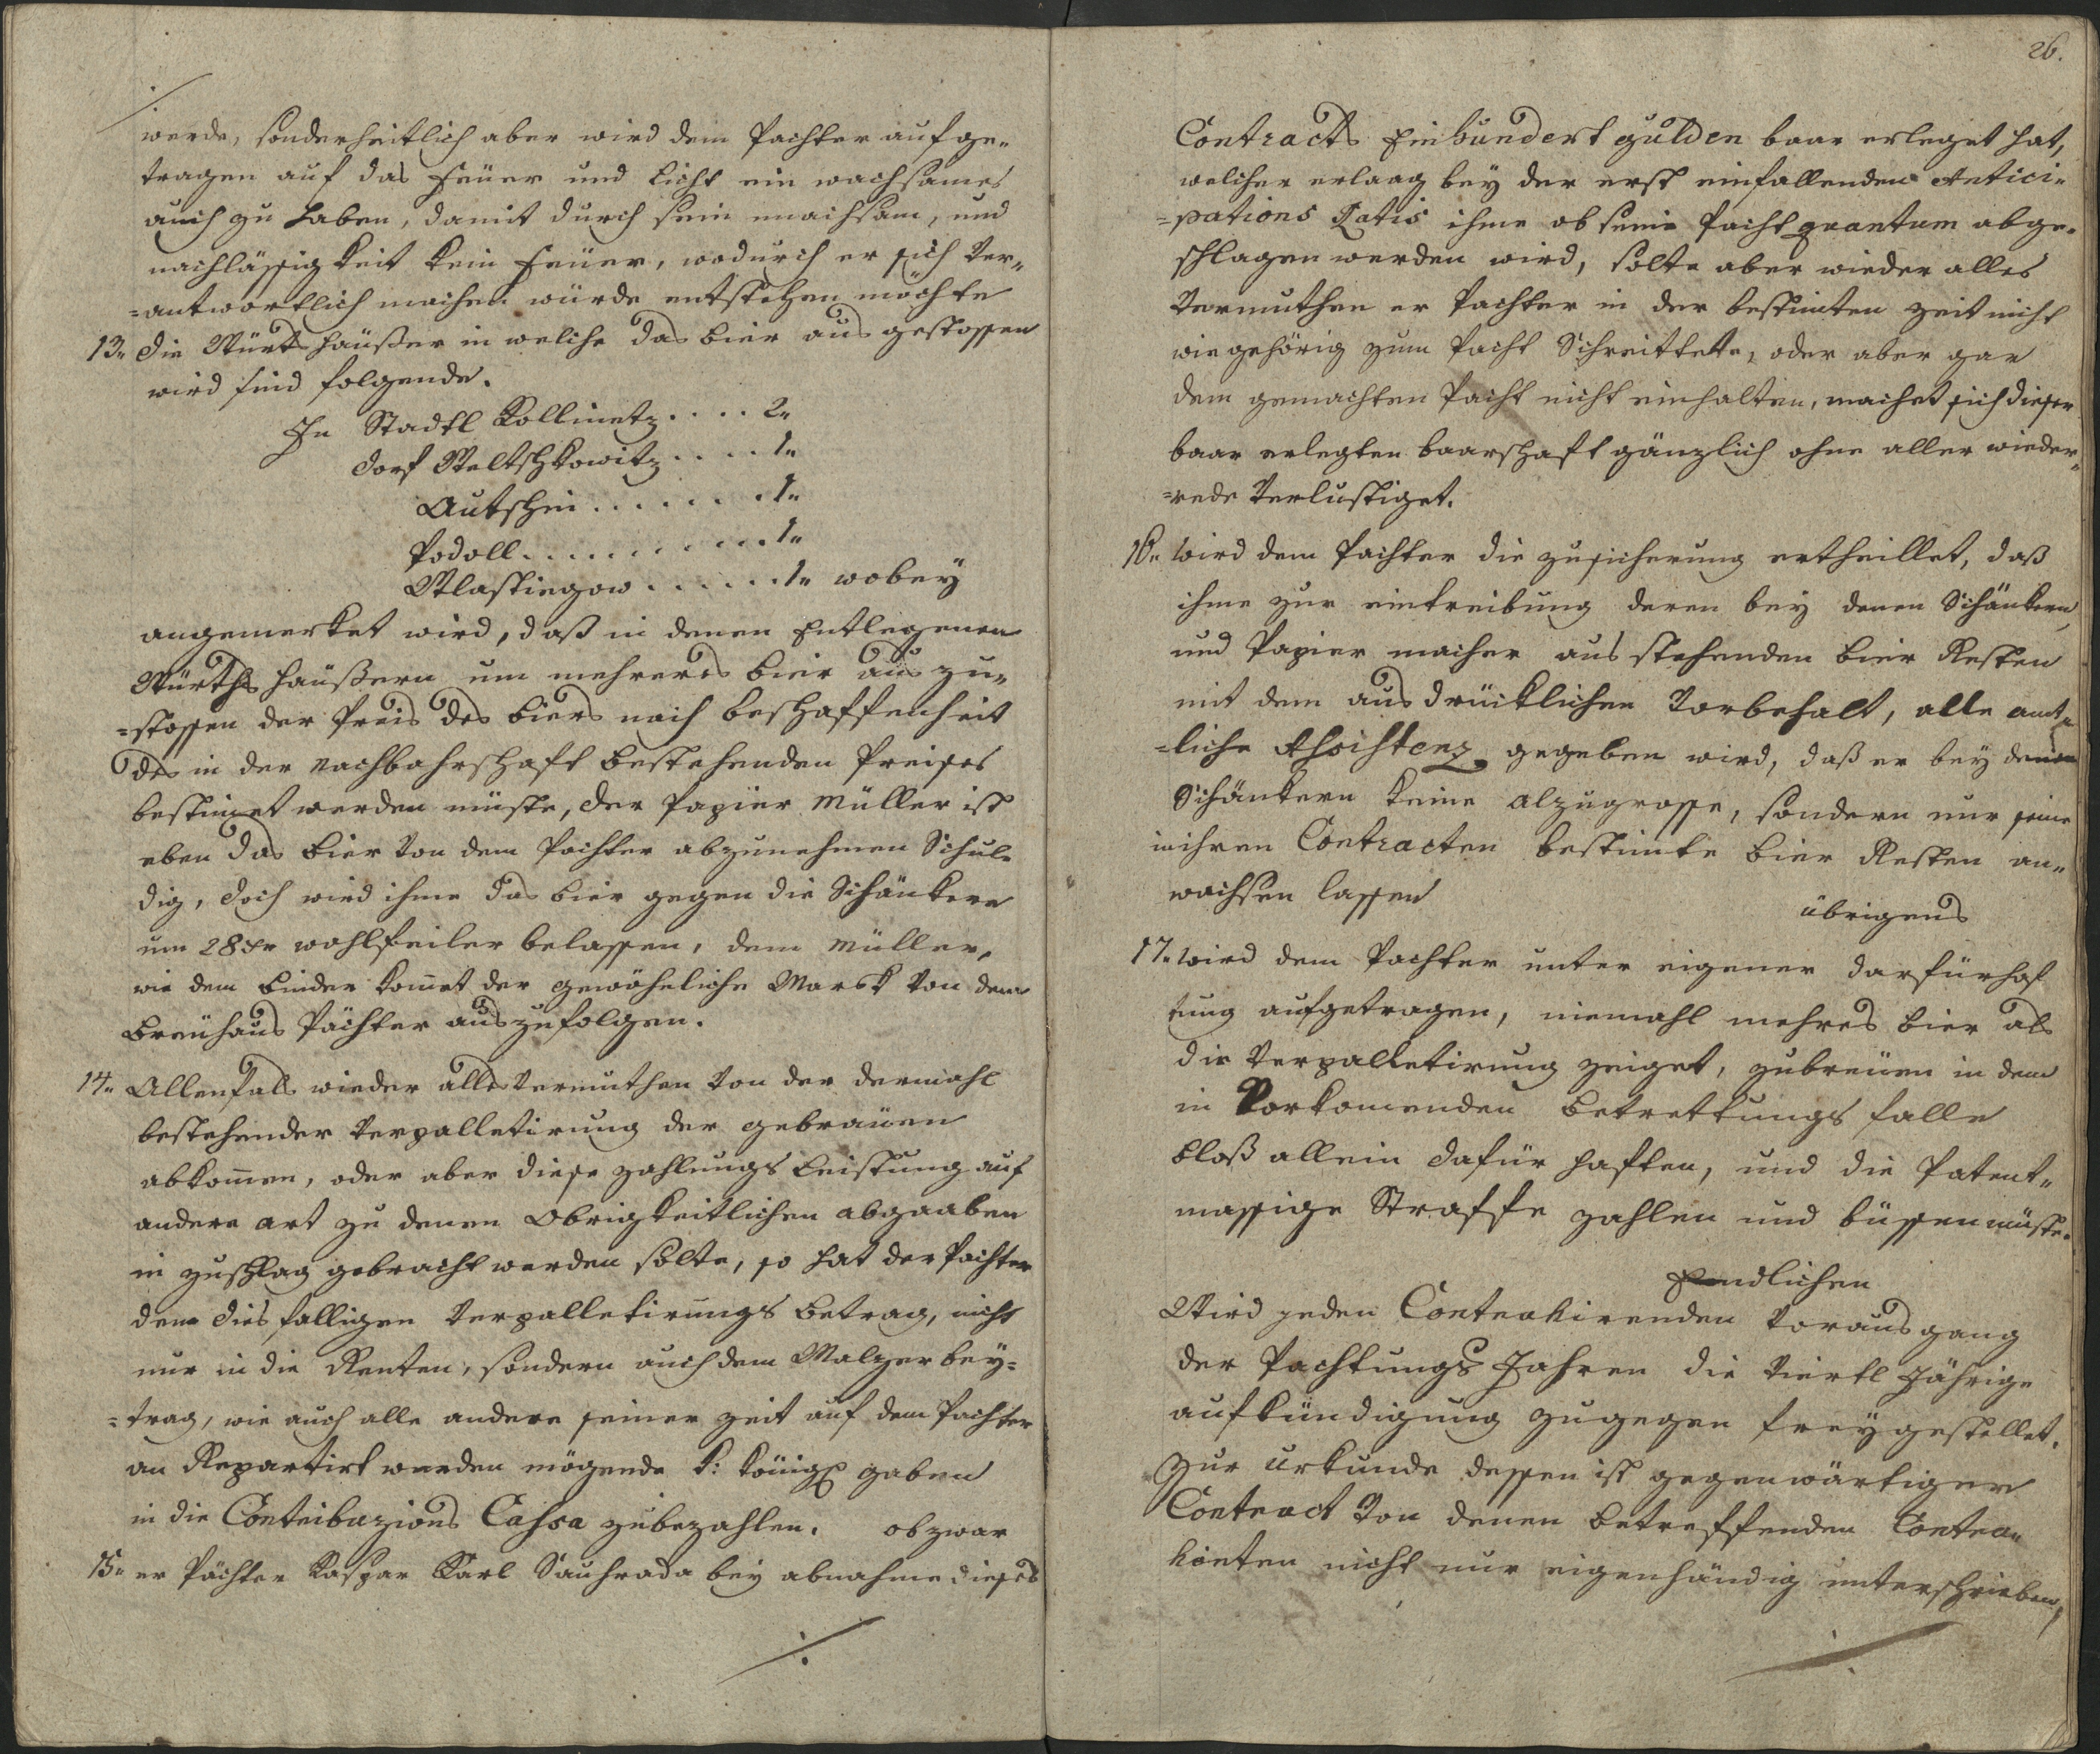 werde, sonderheitlich aber wird dem Pachter aufge-
tragen auf das Feüer und Licht ein wachsames
aug zu haben, damit durch sein unachsam, und
nachlässigkeit kein Feüer, wodurch er sich ver-
=antwortlich machen würde entstehen möchte
13. die Würts häußer in welche das bier aus gestossen
wird sind folgende.
In Stadtl Kollinetz .... 2.
dorf Weltschkowitz .... 1.
Autschin ....... 1.
Podoll .......... 1.
Wlastiegow ...... 1. wobey
angemerket wird, daß in denen Entlegenen
Würths häußern um mehreres bier aus zu-
=stossen der Preis des biers nach beschaffenheit
des in der nachbahrschaft bestehenden Preises
bestimet werden müste, der Papier Müller ist
eben das bier von dem Pachter abzunehmen Schul-
dig, doch wird ihme das bier gegen die Schänkere
um 28 xr wohlfeiler belassen, dem Müller,
wie dem binder komet der gewöhnliche Markt von dem
Breuhaus Pächter auszufolgen.
14. Allenfals wieder alles vermuthen von der dermahl
bestehender Verpalletirung der gebraüen
abkomen, oder aber diese zahlungs Leistung auf
andere art zu denen Obrigkeitlichen abgaaben
in zuschlag gebracht werden solte, so hat der Pachter
dem dies falligen Verpalletirungs betrag, nicht
nur in die Renten, sondern auch dem Malzer bey-
=trag, wie auch alle andere seiner zeit auf dem Pachter
an Repartirt werden mögende k: königl gaben
in die Contribuzions Cassa zubezahlen. obzwar
15. er Pächter Kaspar Karl Sauhrada bey abnahme dieses
26.
Contracts Einhundert gulden baar erleget hat,
welcher erlaag bey der erst einfallenden Antici-
=pations Ratis ihme ob seine Pacht quantum abge-
schlagen werden wird, solte aber wieder alles
Vermuthen er Pachter in der bestimten zeit nicht
wie gehörig zum Pacht Schreittete, oder aber gar
dem gemachten Pacht nicht einhalten, machet sich dieser
baar erlegten baarschaft gänzlich ohne aller wieder-
=rede verlustiget.
16. Wird dem Pachter die zusicherung ertheillet, daß
ihme zur eintreibung deren bey denen Schänkern,
und Papier macher aus stehenden bier Resten
mit dem ausdrücklichen Vorbehalt, alle amt-
=liche Assistenz gegeben wird, daß er bey denen
Schänkern keine alzugrosse, sondern nur seine
in ihren Contracten bestimte bier Resten an-
wachsen lassen
übrigens
17. Wird dem Pachter unter eigener darfürhaf
tung aufgetragen, niemahl mehres bier als
die Verpalletirung zeiget, zubreüen in dem
in Vorkomenden betrettungs falle
bloß allein dafür haften, und die Patent-
massige Straffe zahlen und büssen müste.
Endlichen
Wird jeden Contrahirenden Vorausgang
der Pachtungs Jahren die viertl Jährige
aufkündigung zugegen frey gestellet.
Zur Urkunde dessen ist gegenwärtiger
Contract von denen betreffenden Contra-
hirten nicht nur eigenhändig unterschrieben,